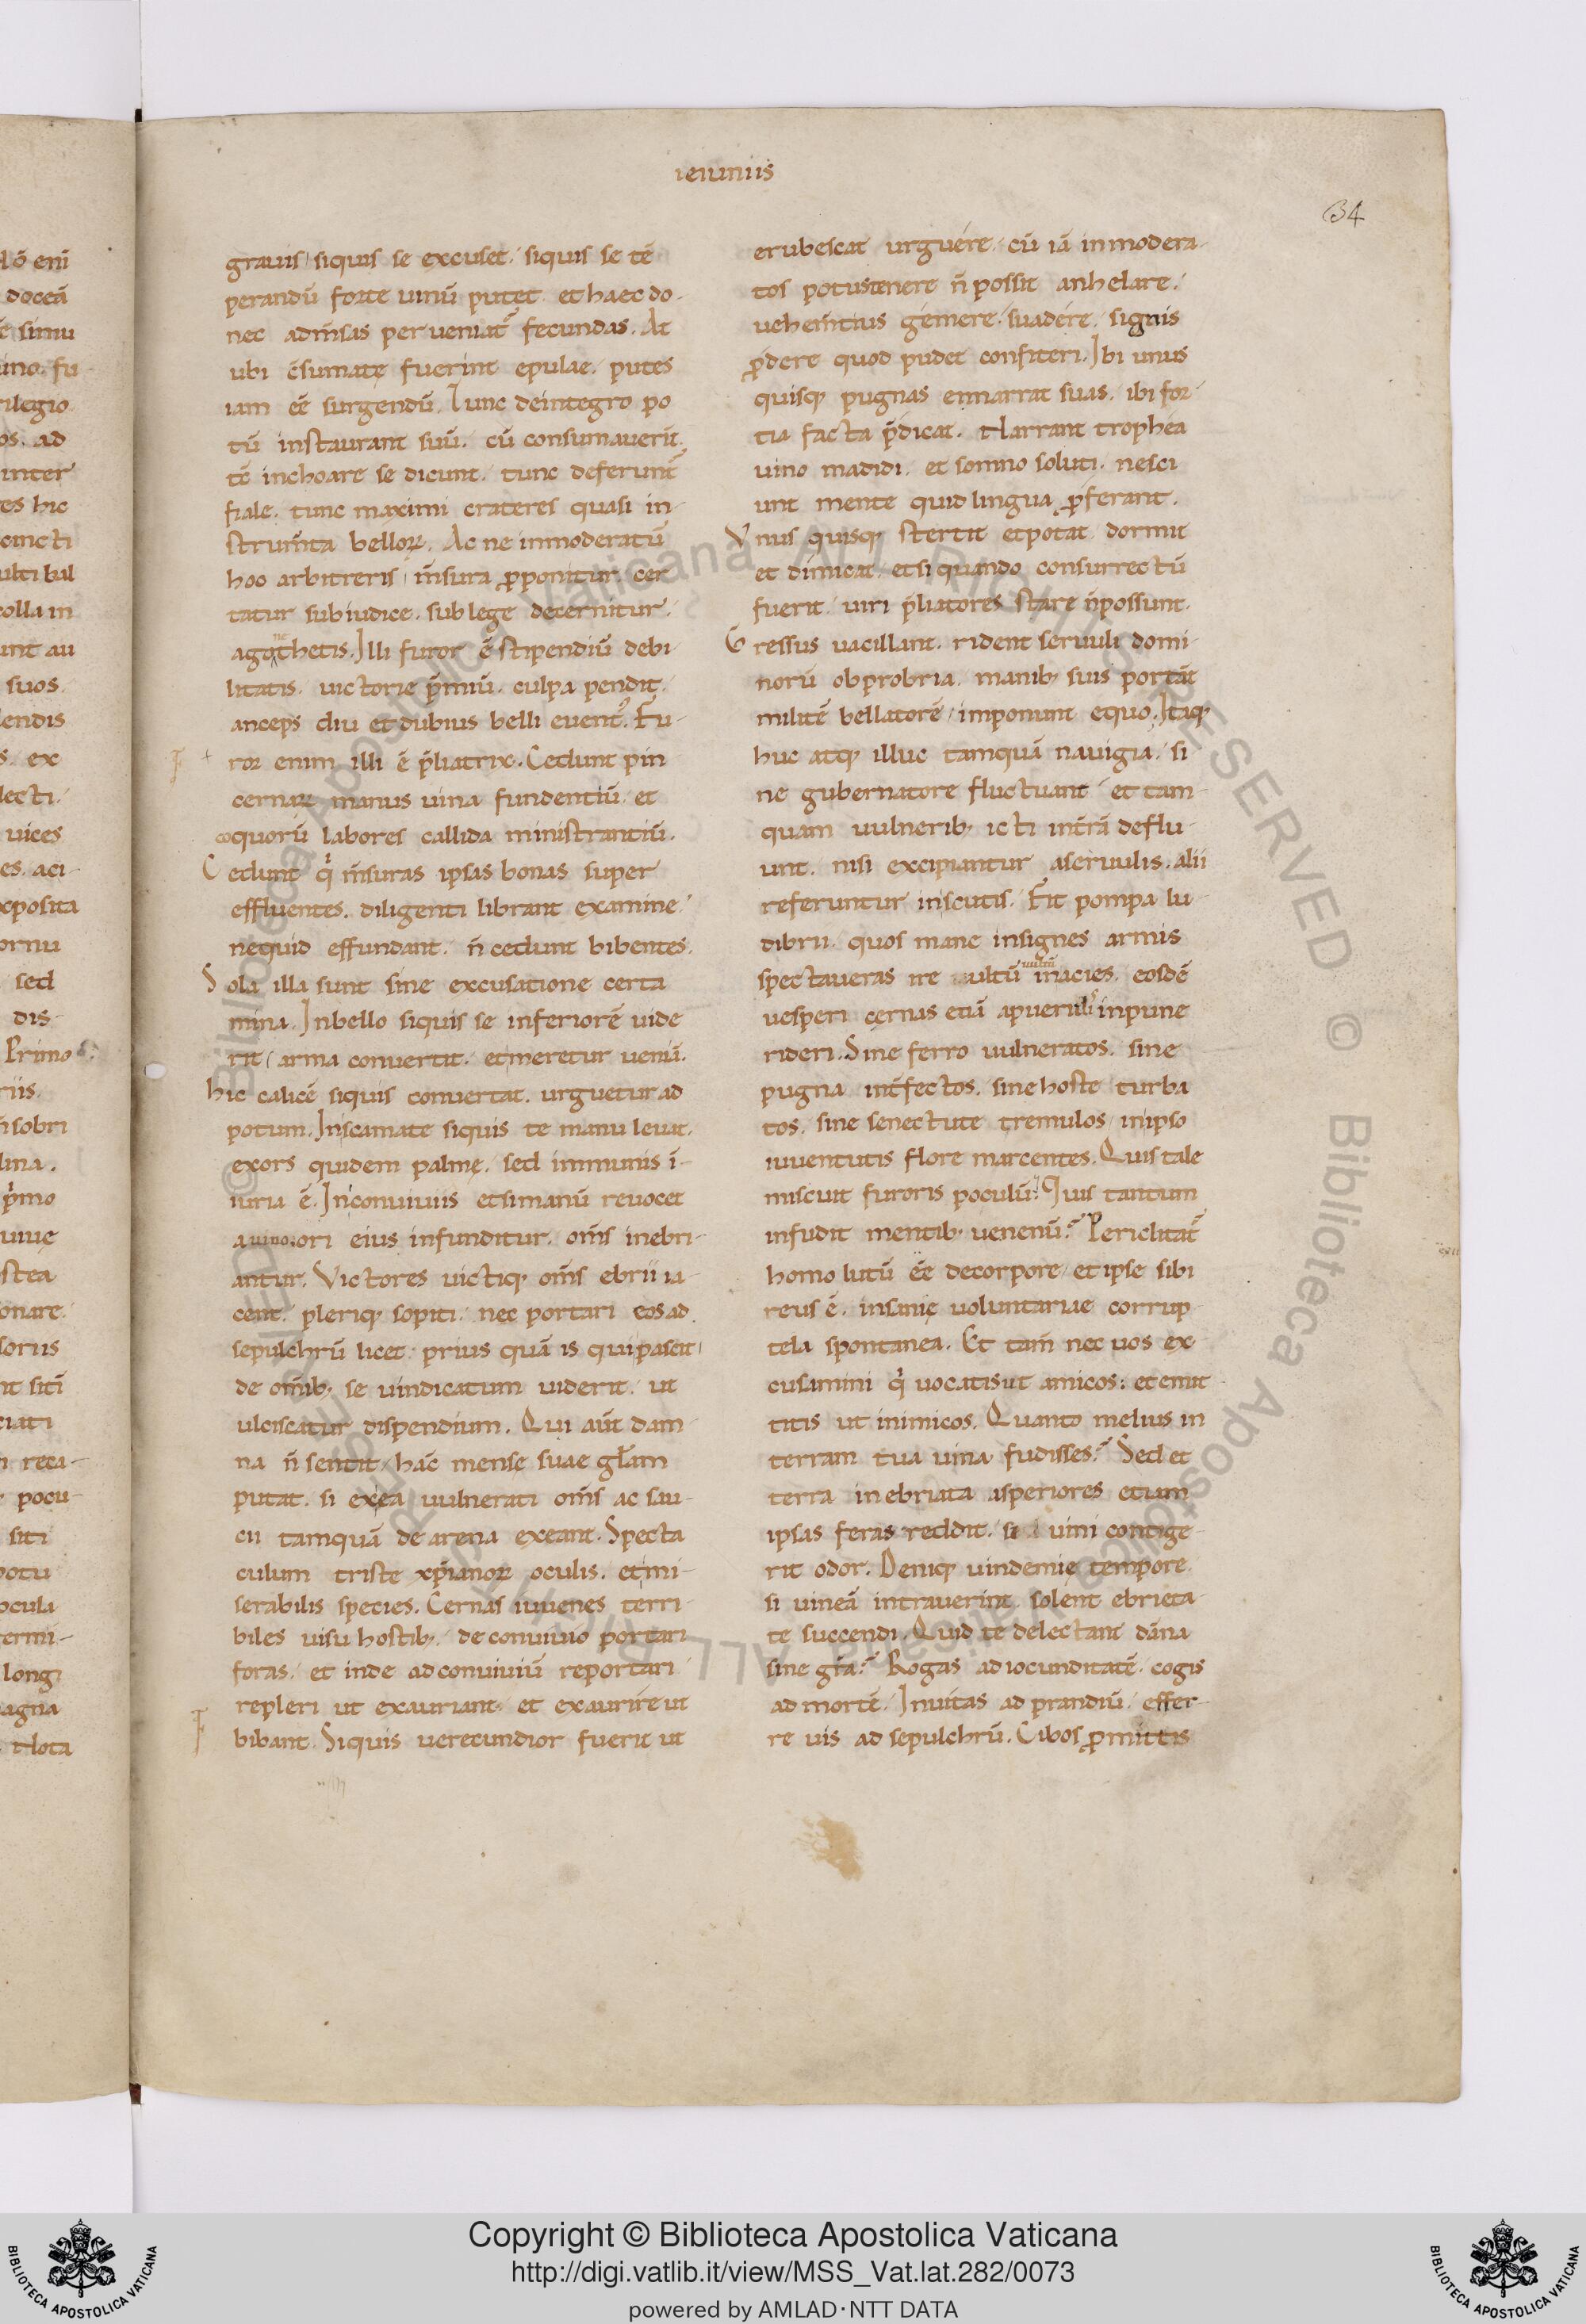 ieiuniis
34
grauis siquis se excuset. siquis se tē
perandū forte uinū putet. et haec do-
nec adm̄sas perueniat̄ fecundas. At
ubi c̄sumatę fuerint epulae. putes
iam eē surgendū. Tunc deintegro po
tū instaurant suū. cū consumauerīt.
tē inchoare se dicunt. tunc deferunt̄
fiale. tunc maximi crateres quasi in-
strum̄ta belloꝝ. Ac ne inmoderatū
hoc arbitreris m̄sura ꝓponitur. cer
tatur subiudice. sublege decernitur.
agonthetis. Illi furor ē stipendiū debi-
litatis. uictorie p̄miū. culpa pendit.
anceps diu et dubius belli euentꝰ. Fu-
ror enim illi ē p̄liatrix. Cedunt pin
cernaꝝ manus uina fundentiū. et
coquorū labores callida ministrantiū.
Cedunt qͥ m̄suras ipsas bonas super
effluentes. diligenti librant examine.
nequid effundant. n̄ cedunt bibentes.
Sola illa sunt sine excusatione certa
mina. Inbello siquis se inferiorē uide
rit arma conuertit. et meretur ueniā.
hic calicē siquis conuertat. urguetur ad
potum. Inscamate siquis te manu leuat.
exors quidem palmę. sed immunis ī-
iuria ē. Inconuiuiis etsi manū reuocet
a uino. ori eius infunditur. om̄s inebri-
antur. Victores uictiq; om̄s ebrii ia-
cent. pleriq; sopiti. nec portari eos ad
sepulchrū licet. prius quā is qui pascit
de om̄ib; se uindicatum uiderit. ut
ulciscatur dispendium. Qui aūt dam-
na n̄ sentit. hāc mense suae gl̄am
putat. si exea uulnerati om̄s ac sau-
cii tamquā de arena exeant. Specta
culum triste xp̄ianoꝝ oculis. et mi-
serabilis species. Cernas iuuenes terri-
biles uisu hostib;. de conuiuio portari
foras. et inde ad conuiuiū reportari
repleri ut exauriant. et exaurire ut
bibant. Siquis uerecundior fuerit ut
erubescat urguere. cū iā inmodera-
tos potus tenere n̄ possit anhelare.
uehem̄tius gemere. suadere. signis
ꝓdere quod pudet confiteri. Ibi unus
quisq; pugnas ennarrat suas. ibi for-
tia facta p̄dicat. Narrant trophea
uino madidi. et somno soluti. nesci
unt mente quid lingua ꝓferant.
Vnus quisq; stertit et potat dormit
et dimicat. et si quando consurrectū
fuerit. uiri p̄liatores stare n̄ possunt.
Gressus uacillant. rident seruuli domi-
norū obprobria. manib; suis portāt
militē bellatorē. imponunt equo. Itaq;
huc atq; illuc tamquā nauigia. si
ne gubernatore fluctuant et tam-
quam uulnerib; icti int̄rā deflu-
unt. nisi excipiantur aseruulis. alii
referuntur inscutis. Fit pompa lu-
dibrii. quos mane insignes armis
spectaueras ire uultū inacies. eosdē
uesperi cernas etiā apuerulis inpune
rideri. Sine ferro uulneratos. sine
pugna int̄fectos. sine hoste turba
tos. sine senectute tremulos inipso
iuuentutis flore marcentes. Quis tale
miscuit furoris poculū? Quis tantum
infudit mentib; uenenū? Periclitat̄
homo lutū eē decorpore. et ipse sibi
reus ē. insanię uoluntariae corrup-
tela spontanea. Et tam̄ nec uos ex-
cusamini qͥ uocatis ut amicos: et emit-
titis ut inimicos. Quanto melius in
terram tua uina fudisses? Sed et
terra inebriata asperiores etiam
ipsas feras reddit. si uini contige-
rit odor. Deniq; uindemię tempore
si uineā intrauerint. solent ebrieta-
te succendi. Quid te delectant dāna
sine gr̄a? Rogas ad iocunditatē. cogis
ad mortē. Inuitas ad prandiū. effer-
re uis ad sepulchrū. Cibos ꝓmittis
Copyright © Biblioteca Apostolica Vaticana
http://digi.vatlib.it/view/MSS_Vat.lat.282/0073
powered by AMLAD·NTT DATA
BIBLIOTECA APOSTOLICA VATICANA
BIBLIOTECA APOSTOLICA VATICANA